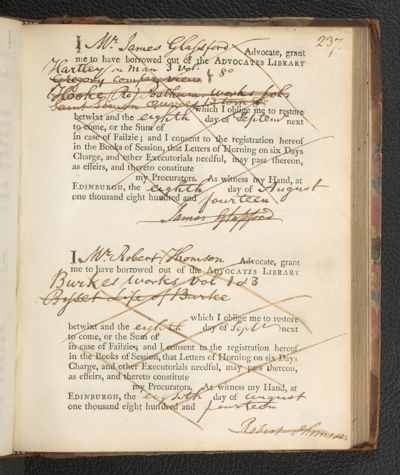 237.
I Mr. James Glassford Advocate, grant
me to have borrowed out of the ADVOCATES LIBRARY
Hartley on man 3 vol.
Gregory comparative view 8o
Hooke (Ro) Posthum. works fol.
which I oblige me to restore
betwixt and the eighth day of Septem next
to come, or the Sum of
in case of Failzie; and I consent to the registration hereof
in the Books of Session, that Letters of Horning on six Days
Charge, and other Executorials needful, may pass thereon,
as effeirs, and thereto constitute
my Procurators. As witness my Hand, at
EDINBURGH, the eighth day of August
one thousand eight hundred and fourteen
James Glassford
I Mr. Robert Thomson Advocate, grant
me to have borrowed out of the ADVOCATES LIBRARY
Burkes works vol 1 & 3
Bisset Life of Burke
which I oblige me to restore
betwixt and the eighth day of Septr next
to come, or the Sum of
in case of Failzie; and I consent to the registration hereof
in the Books of Session, that Letters of Horning on six Days
Charge, and other Executorials needful, may pass thereon,
as effeirs, and thereto constitute
my Procurators. As witness my Hand, at
EDINBURGH, the eighth day of august
one thousand eight hundred and fourteen
Robert Thomson